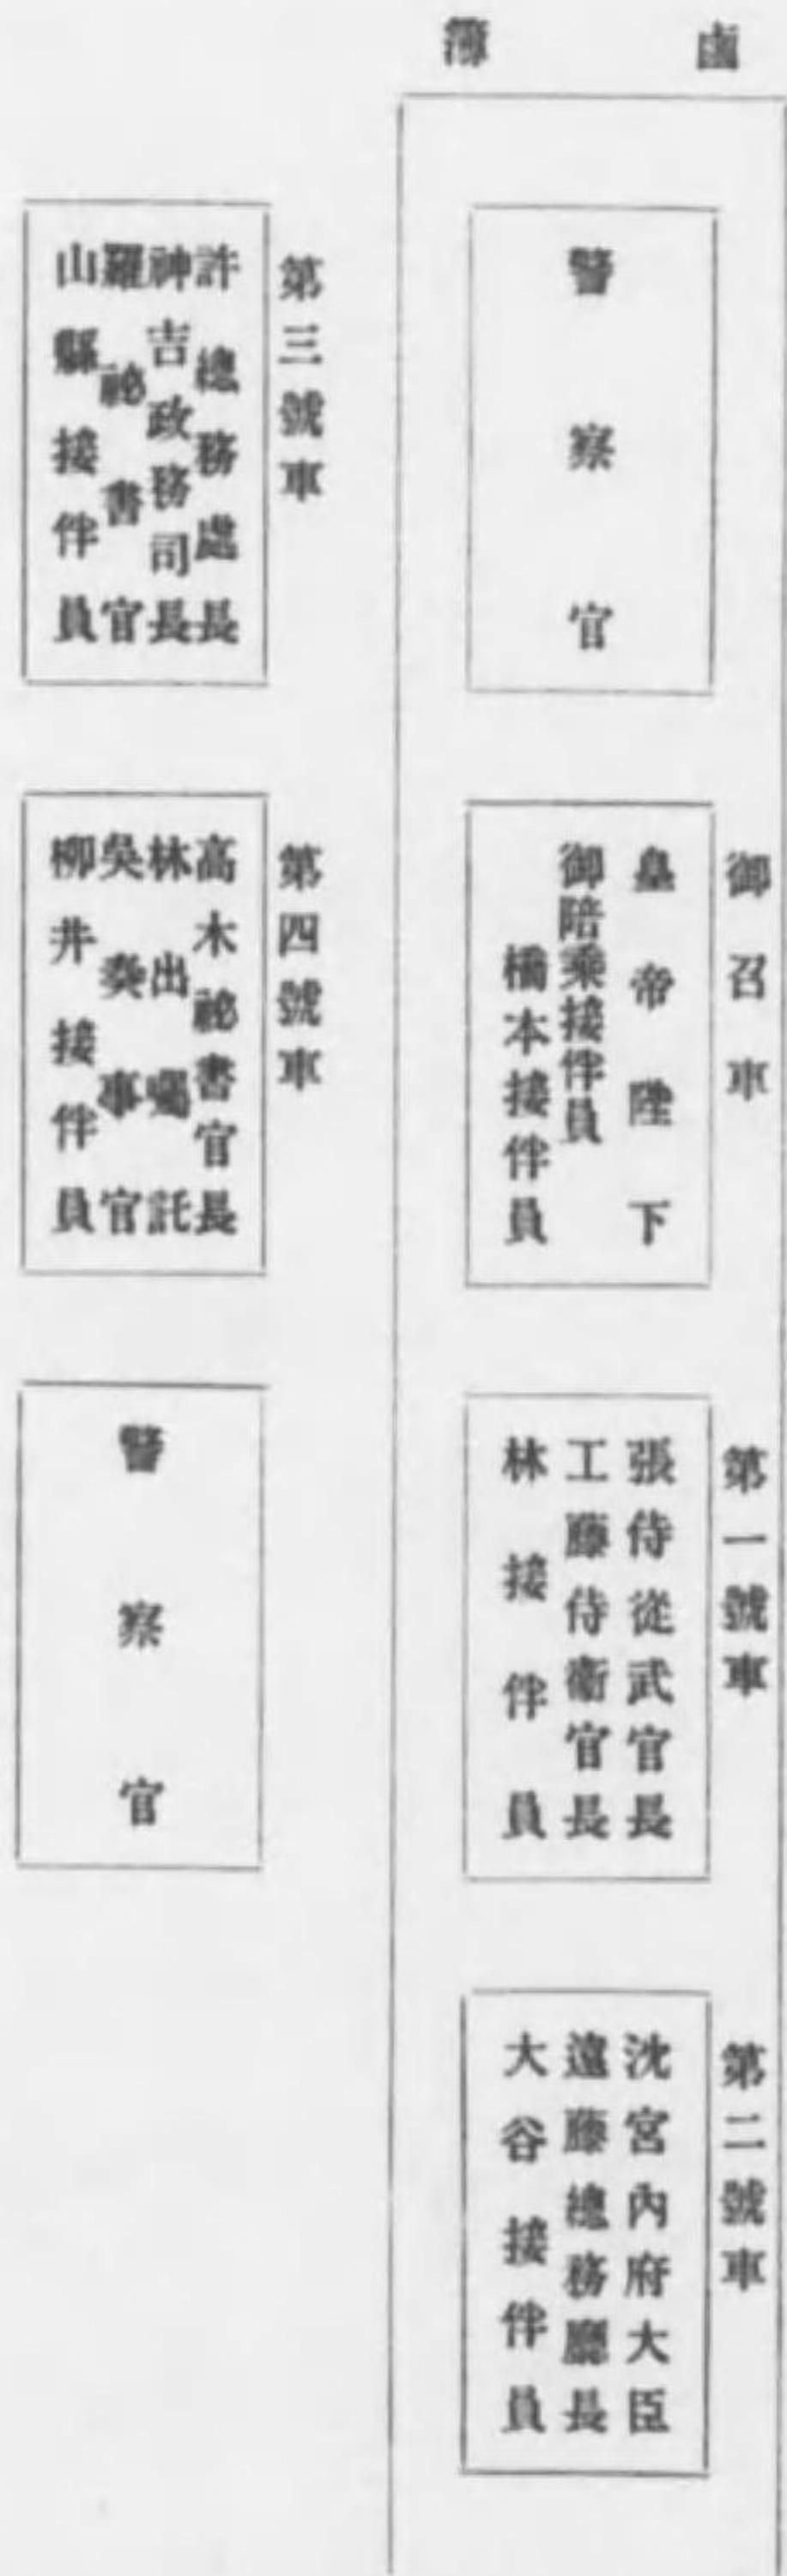 鹵簿
警察官
御召車
皇帝陛下
御陪乘接伴員
橋本接伴員
第一號車
張侍從武官長
工藤侍衞官長
林接伴員
第二號車
沈宮內府大臣
遠藤總務廳長
大谷接伴員
第三號車
許總務處長
神吉政務司長
羅祕書官
山縣接伴員
第四號車
高木祕書官長
林出囑託
吳奏事官
柳井接伴員
警察官